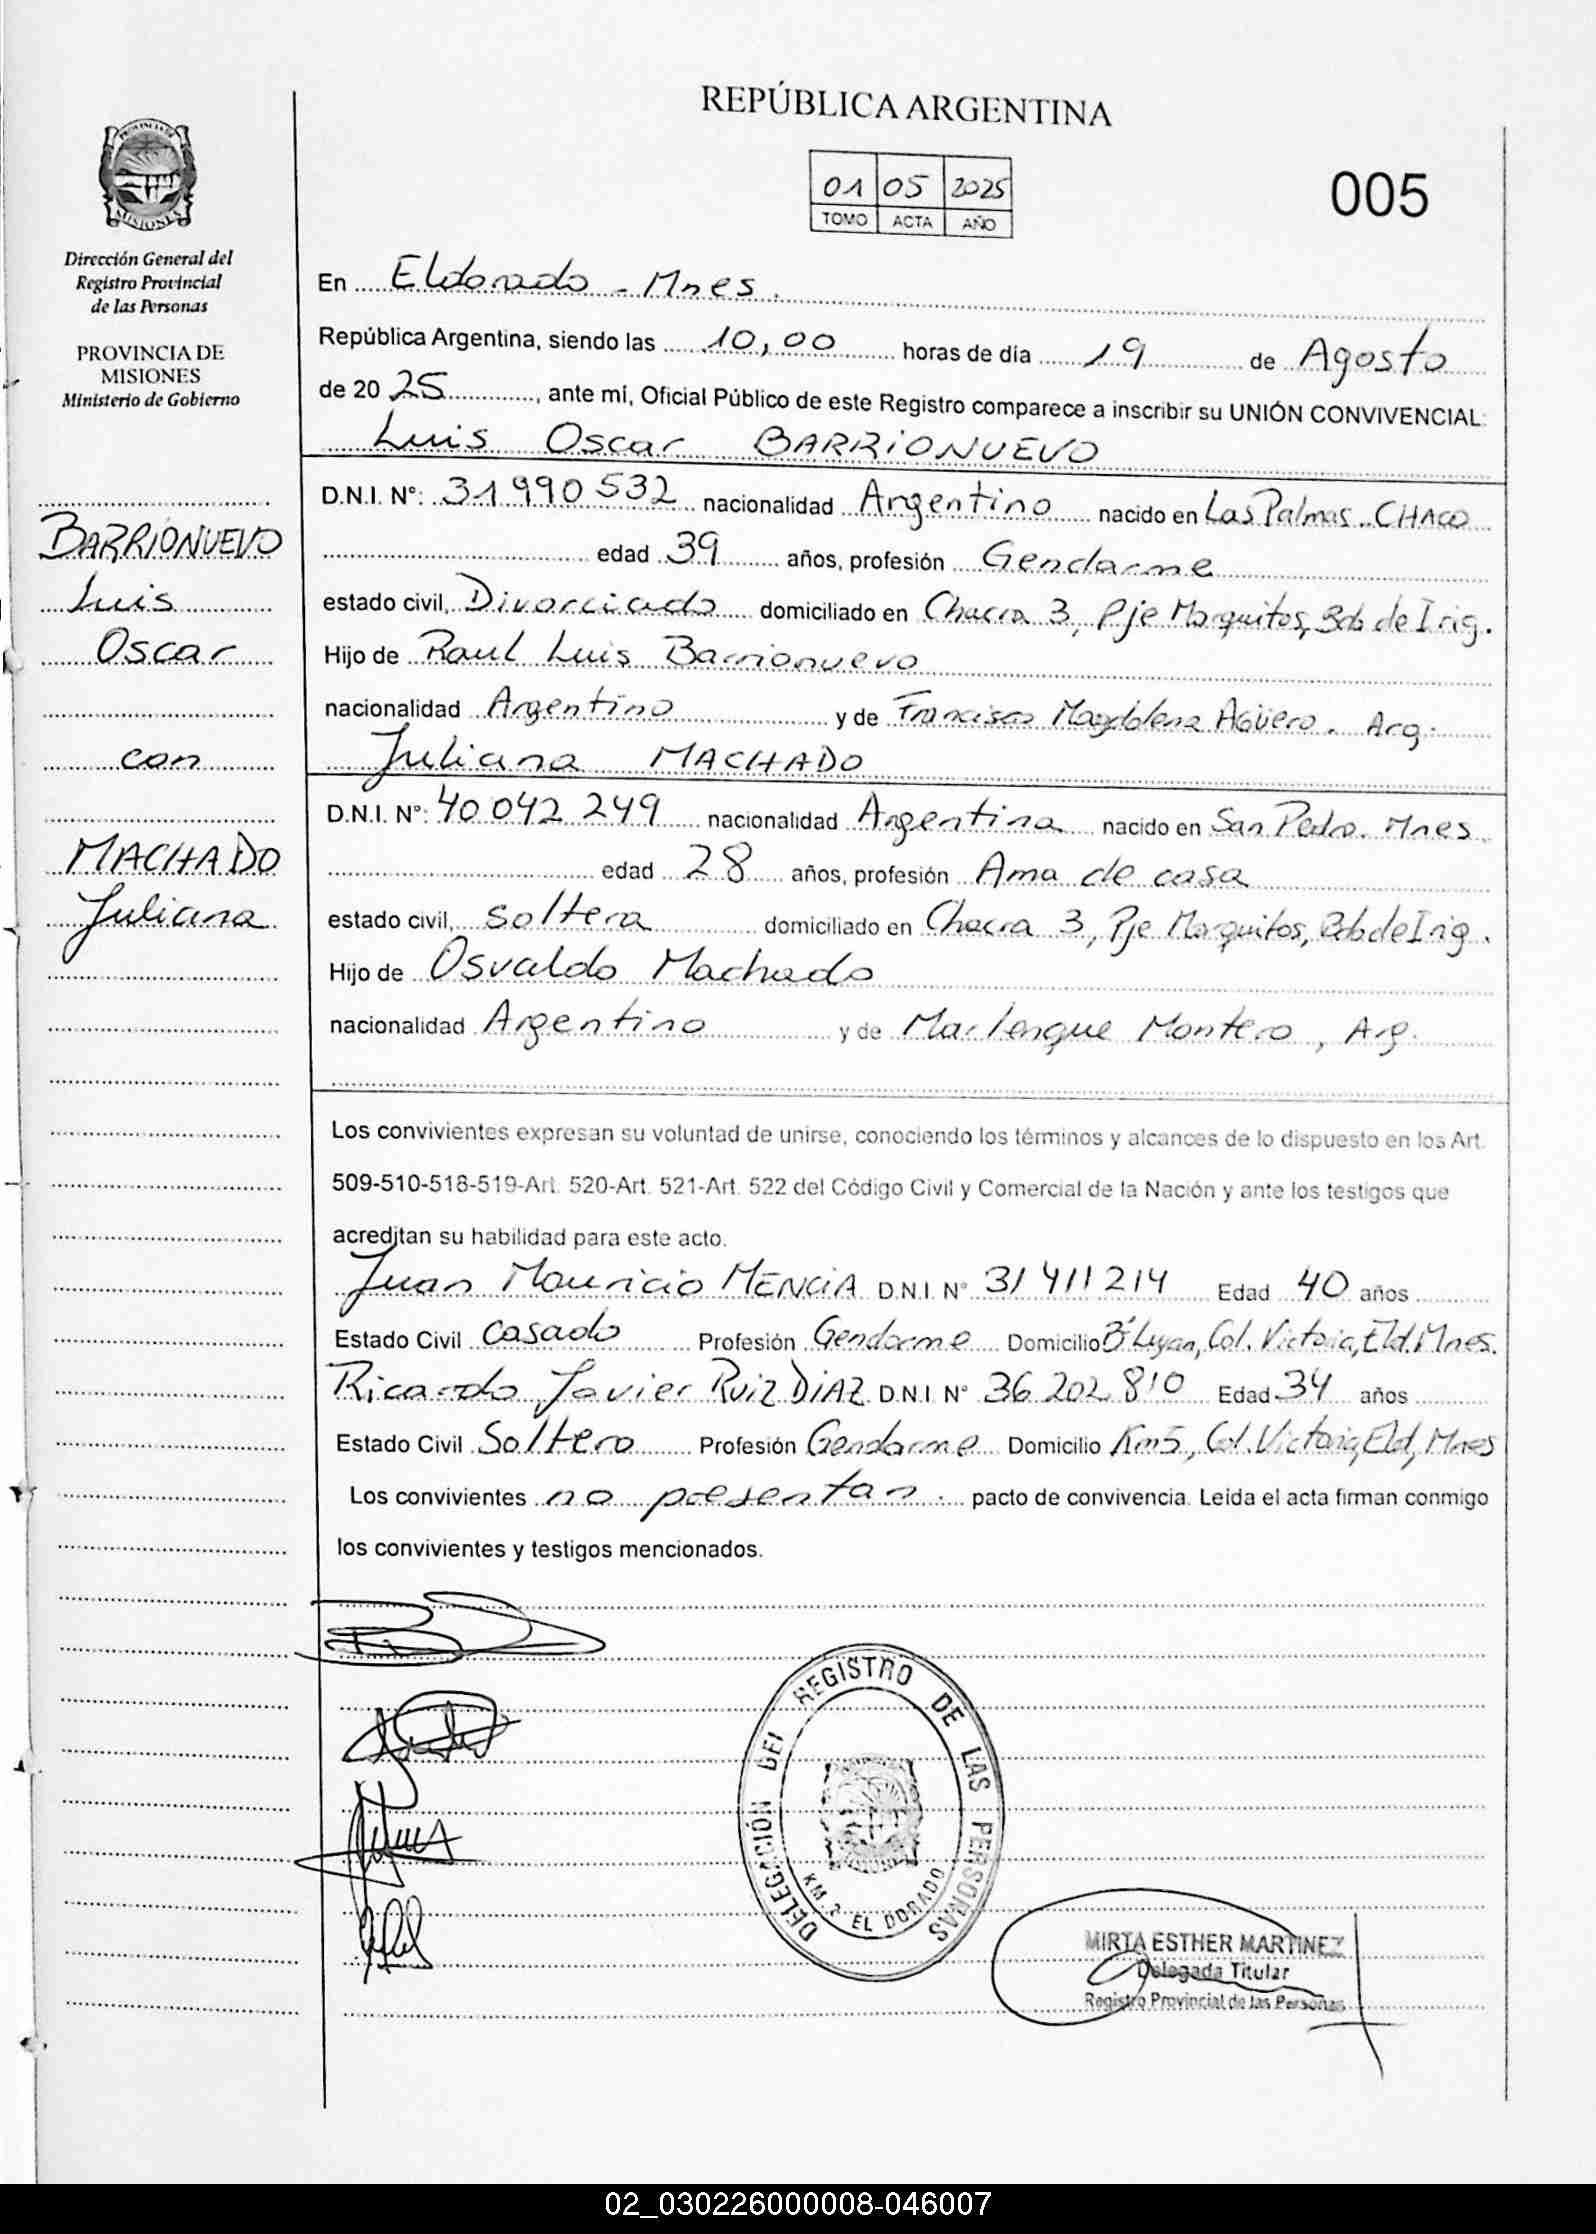 REPÚBLICA ARGENTINA
PROVINCIA DE
MISIONES
Dirección General del
Registro Provincial
de las Personas
PROVINCIA DE
MISIONES
Ministerio de Gobierno
01 05 2025
TOMO ACTA AÑO
005
En Eldorado - Mnes.
República Argentina, siendo las 10,00 horas de día 19 de Agosto
de 2025, ante mí, Oficial Público de este Registro comparece a inscribir su UNIÓN CONVIVENCIAL:
Luis Oscar BARRIONUEVO
D.N.I. N°: 31990532 nacionalidad Argentino nacido en Las Palmas - CHACO
edad 39 años, profesión Gendarme
estado civil, Divorciado domiciliado en Chacra 3, Pje Marquitos, Bdo de Irig.
Hijo de Raul Luis Barrionuevo
nacionalidad Argentino y de Francisca Magdalena Agüero. Arg.
Juliana MACHADO
D.N.I. N°: 40042249 nacionalidad Argentina nacido en San Pedro. Mnes
edad 28 años, profesión Ama de casa
estado civil, soltera domiciliado en Chacra 3, Pje Marquitos, Bdo de Irig.
Hijo de Osvaldo Machado
nacionalidad Argentino y de Marlenque Montero, Arg.
BARRIONUEVO
Luis
Oscar
con
MACHADO
Juliana
Los convivientes expresan su voluntad de unirse, conociendo los términos y alcances de lo dispuesto en los Art.
509-510-518-519-Art. 520-Art. 521-Art. 522 del Código Civil y Comercial de la Nación y ante los testigos que
acreditan su habilidad para este acto.
Juan Mauricio MENCIA D.N.I. N° 31411214 Edad 40 años
Estado Civil Casado Profesión Gendarme Domicilio B° Lujan, Col. Victoria, Eld. Mnes.
Ricardo Javier RUIZ DIAZ D.N.I. N° 36202810 Edad 34 años
Estado Civil Soltero Profesión Gendarme Domicilio Km5, Col. Victoria, Eld, Mnes
Los convivientes no presentan. pacto de convivencia. Leida el acta firman conmigo
los convivientes y testigos mencionados.
DELEGACIÓN DEL REGISTRO DE LAS PERSONAS
KM 2 EL DORADO
MIRTA ESTHER MARTINEZ
Delegada Titular
Registro Provincial de las Personas
02_030226000008-046007